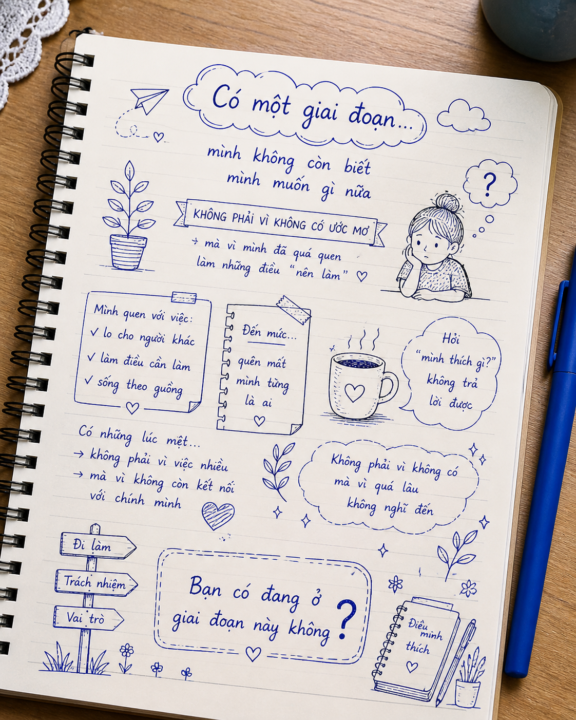 Có một giai đoạn...
mình không còn biết
mình muốn gì nữa
?
KHÔNG PHẢI VÌ KHÔNG CÓ ƯỚC MƠ
→ mà vì mình đã quá quen
làm những điều "nên làm" ♡
Mình quen với việc:
✓ lo cho người khác
✓ làm điều cần làm
✓ sống theo guồng
Đến mức...
quên mất
mình từng
là ai
Hỏi
"mình thích gì?"
không trả
lời được
Có những lúc mệt...
→ không phải vì việc nhiều
→ mà vì không còn kết nối
với chính mình
Không phải vì không có
mà vì quá lâu
không nghĩ đến
Đi làm
Trách nhiệm
Vai trò
Bạn có đang ở
giai đoạn này không?
Điều
mình
thích